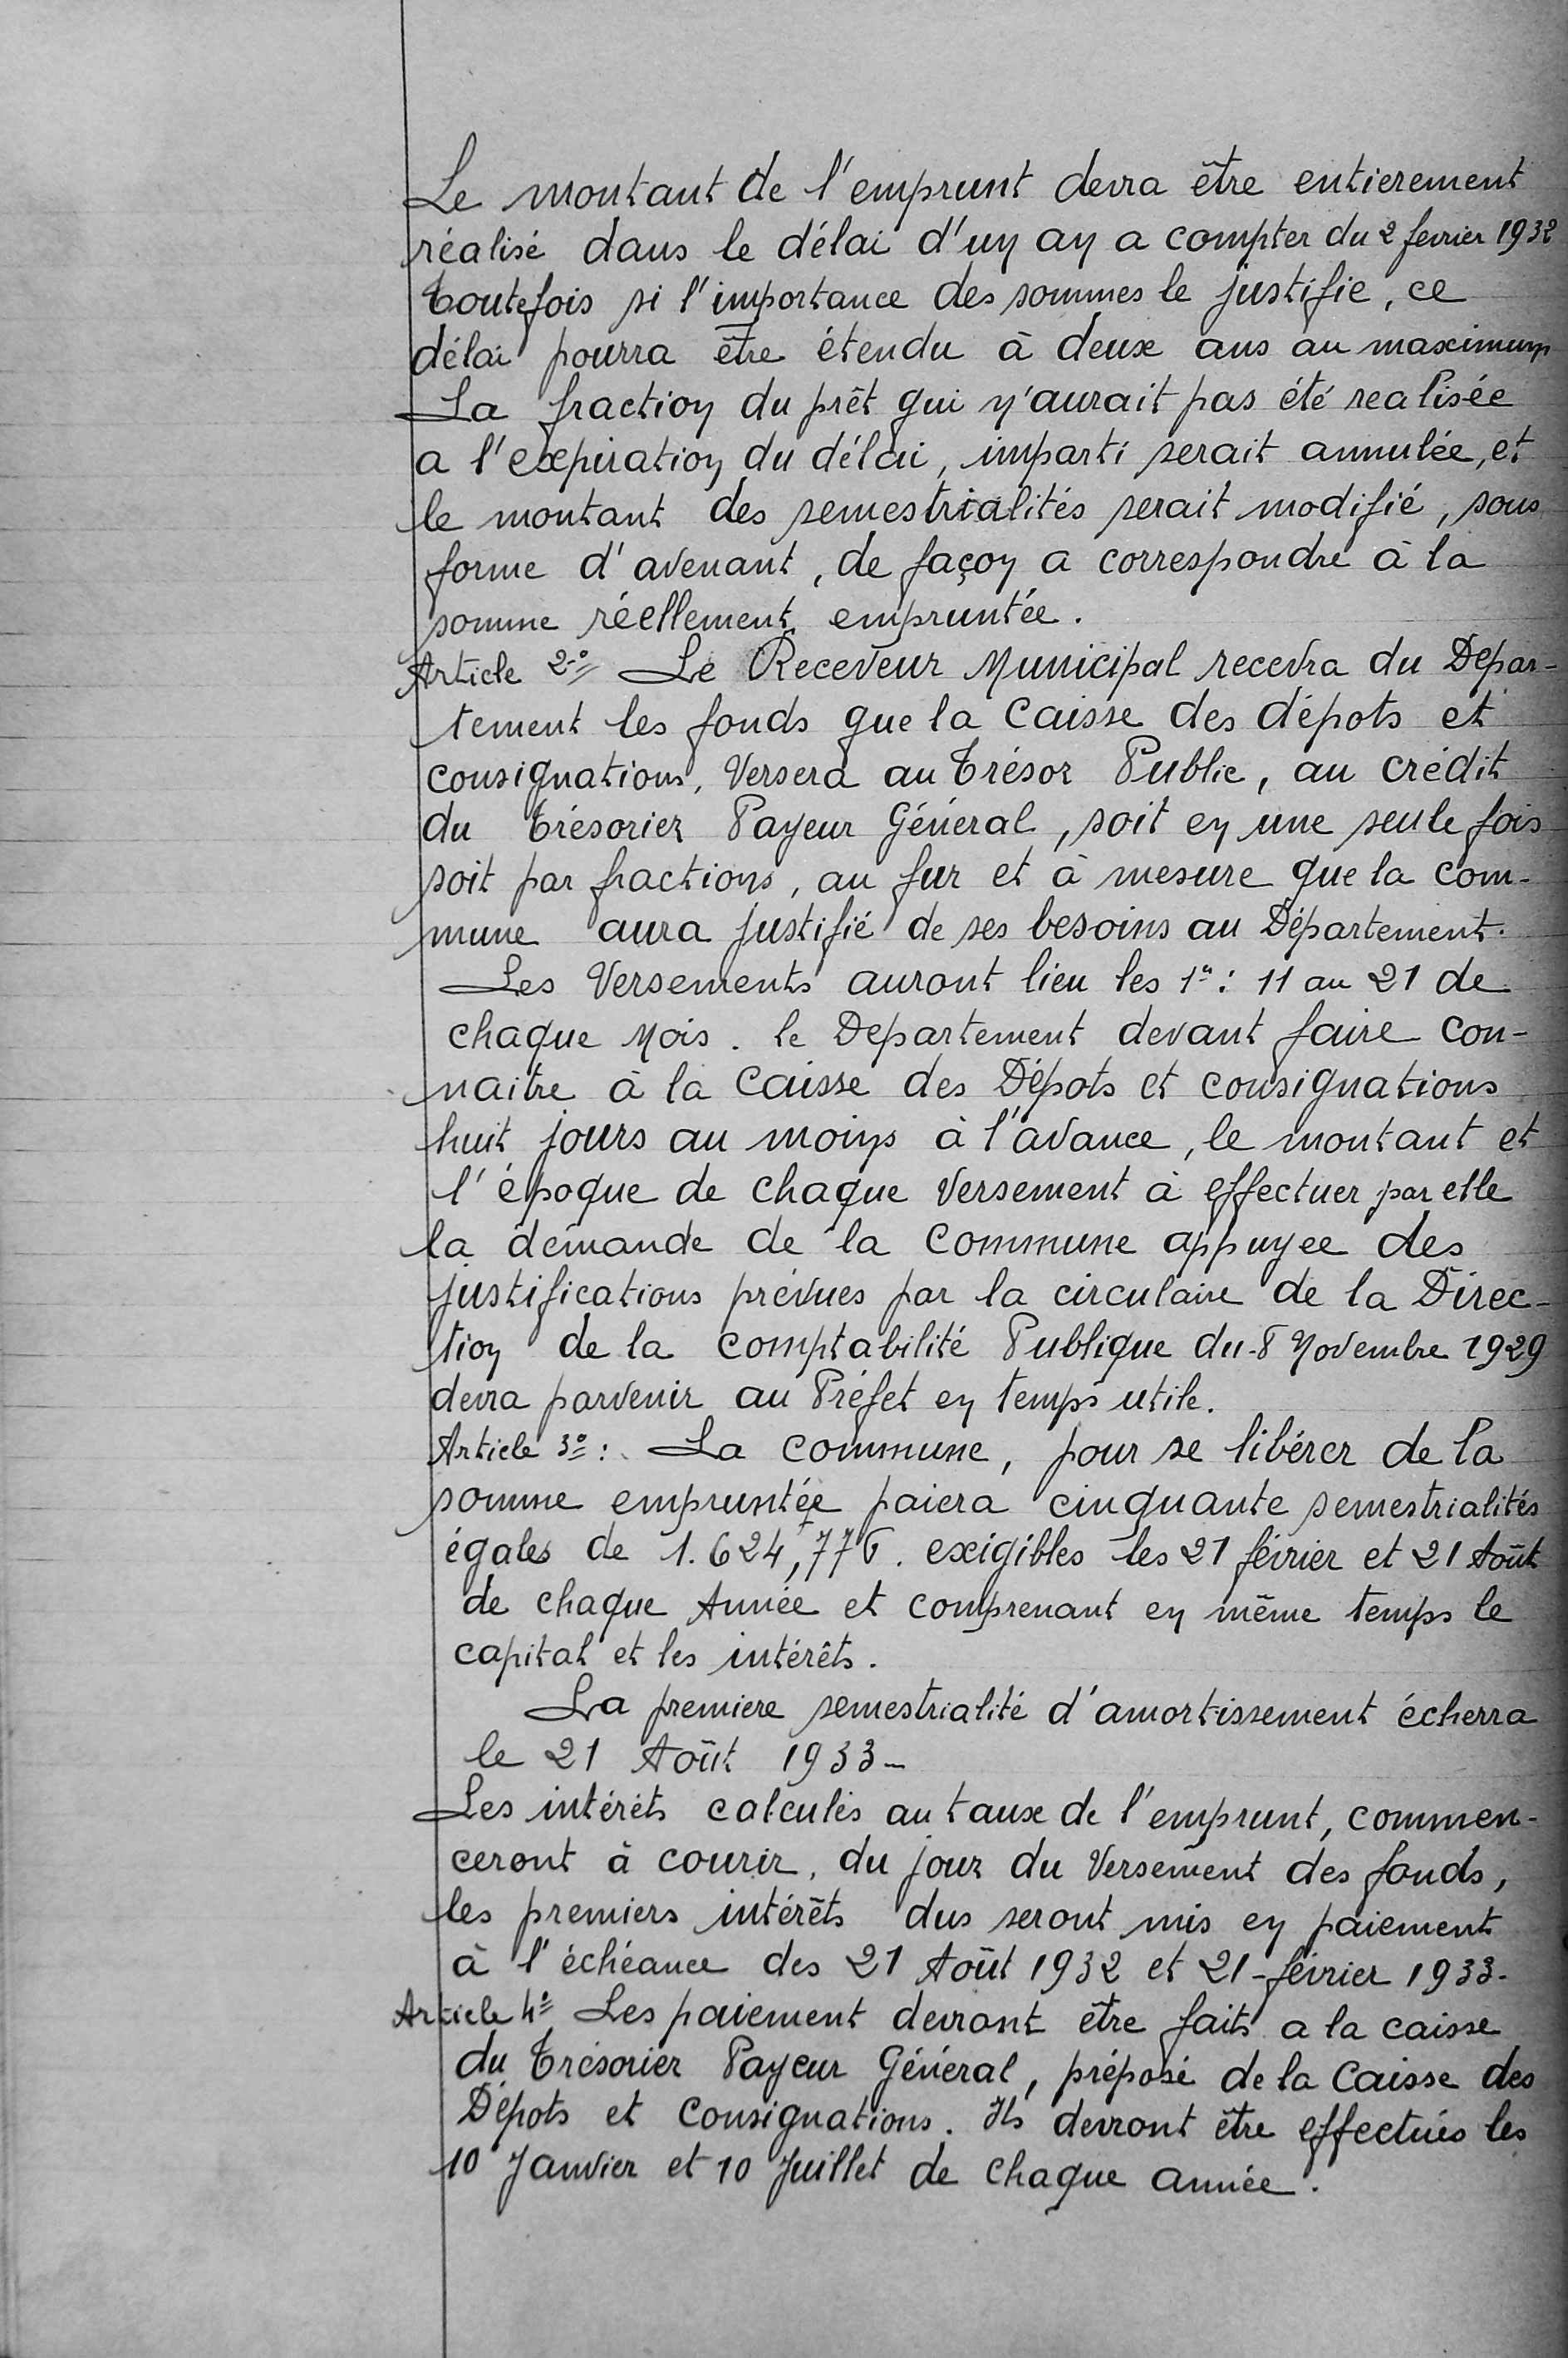 Le montant de l'emprunt devra être entierement
réalisé dans le délai d'un an a compter du 2 fevrier 1932
toutefois si l'importance des sommes le justifie, ce
délai pourra être étendu à deux ans au maximum
La fraction du prêt qui n'aurait pas été realisée
a l'expiration du délai, imparti serait annulée, et
le montant des semestrialités serait modifié, sous
forme d'avenant, de façon a correspondre à la
somme réellement empruntée.
Article 2º Le Receveur Municipal recevra du Depar-
tement les fonds que la Caisse des dépots et
consignations, Versera au Trésor Public, au crédit
du Trésorier Payeur Général, soit en une seule fois
soit par fractions, au fur et à mesure que la com-
mune aura justifié de ses besoins au Département.
Les Versements auront lieu les 1er: 11 au 21 de
chaque Mois. le Departement devant faire con-
naitre à la Caisse des Dépots et consignations
huit jours au moins à l'avance, le montant et
l'époque de chaque versement à effectuer par elle
la demande de la Commune appuyee des
justifications prévues par la circulaire de la Direc-
tion de la comptabilité Publique du 8 Novembre 1929
devra parvenir au Préfet en temps utile.
Article 3º: La commune, pour se libérer de la
somme empruntée paiera cinquante semestrialités
égales de 1.624,776. exigibles les 21 février et 21 Août
de chaque Année et comprenant en même temps le
capital et les intérêts.
La premiere semestrialité d'amortissement écherra
le 21 Août 1933-
Les intérêts calculés au taux de l'emprunt, commen-
ceront à courir, du jour du Versement des fonds,
les premiers intérêts dus seront mis en paiement
à l'échéance des 21 Août 1932 et 21-février 1933-
Article 4º Les paiement devront être faits a la caisse
du Trésorier Payeur Général, préposé de la Caisse des
Dépots et Consignations. Ils devront être effectués les
10 Janvier et 10 Juillet de chaque année.